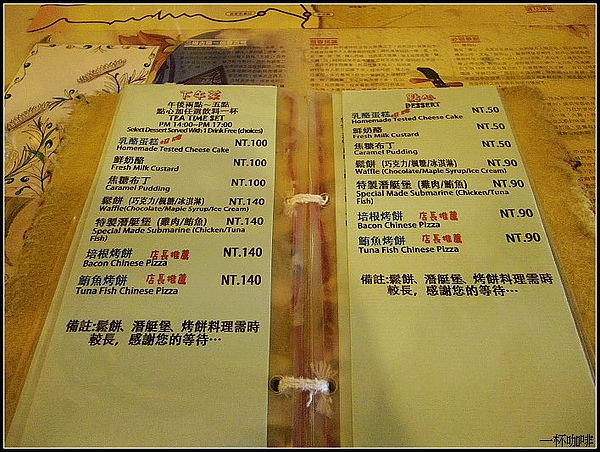 下午茶
午後兩點~五點
點心加任選飲料一杯
TEA TIME SET
PM 14:00~PM 17:00
Select Dessert Served With 1 Drink Free (choices)
乳酪蛋糕 NT.100
Homemade Tested Cheese Cake
鮮奶酪 NT.100
Fresh Milk Custard
焦糖布丁 NT.100
Caramel Pudding
鬆餅 (巧克力/楓糖/冰淇淋) NT.140
Waffle(Chocolate/Maple Syrup/Ice Cream)
特製潛艇堡 (雞肉/鮪魚) NT.140
Special Made Submarine (Chicken/Tuna
Fish)
培根烤餅 店長推薦 NT.140
Bacon Chinese Pizza
鮪魚烤餅 店長推薦 NT.140
Tuna Fish Chinese Pizza
備註:鬆餅、潛艇堡、烤餅料理需時
較長，感謝您的等待…
點心
DESSERT
乳酪蛋糕 NT.50
Homemade Tested Cheese Cake
鮮奶酪 NT.50
Fresh Milk Custard
焦糖布丁 NT.50
Caramel Pudding
鬆餅 (巧克力/楓糖/冰淇淋) NT.90
Waffle (Chocolate/Maple Syrup/Ice Cream)
特製潛艇堡 (雞肉/鮪魚) NT.90
Special Made Submarine (Chicken/Tuna
Fish)
培根烤餅 店長推薦 NT.90
Bacon Chinese Pizza
鮪魚烤餅 店長推薦 NT.90
Tuna Fish Chinese Pizza
備註:鬆餅、潛艇堡、烤餅料理需時
較長，感謝您的等待…
一杯咖啡